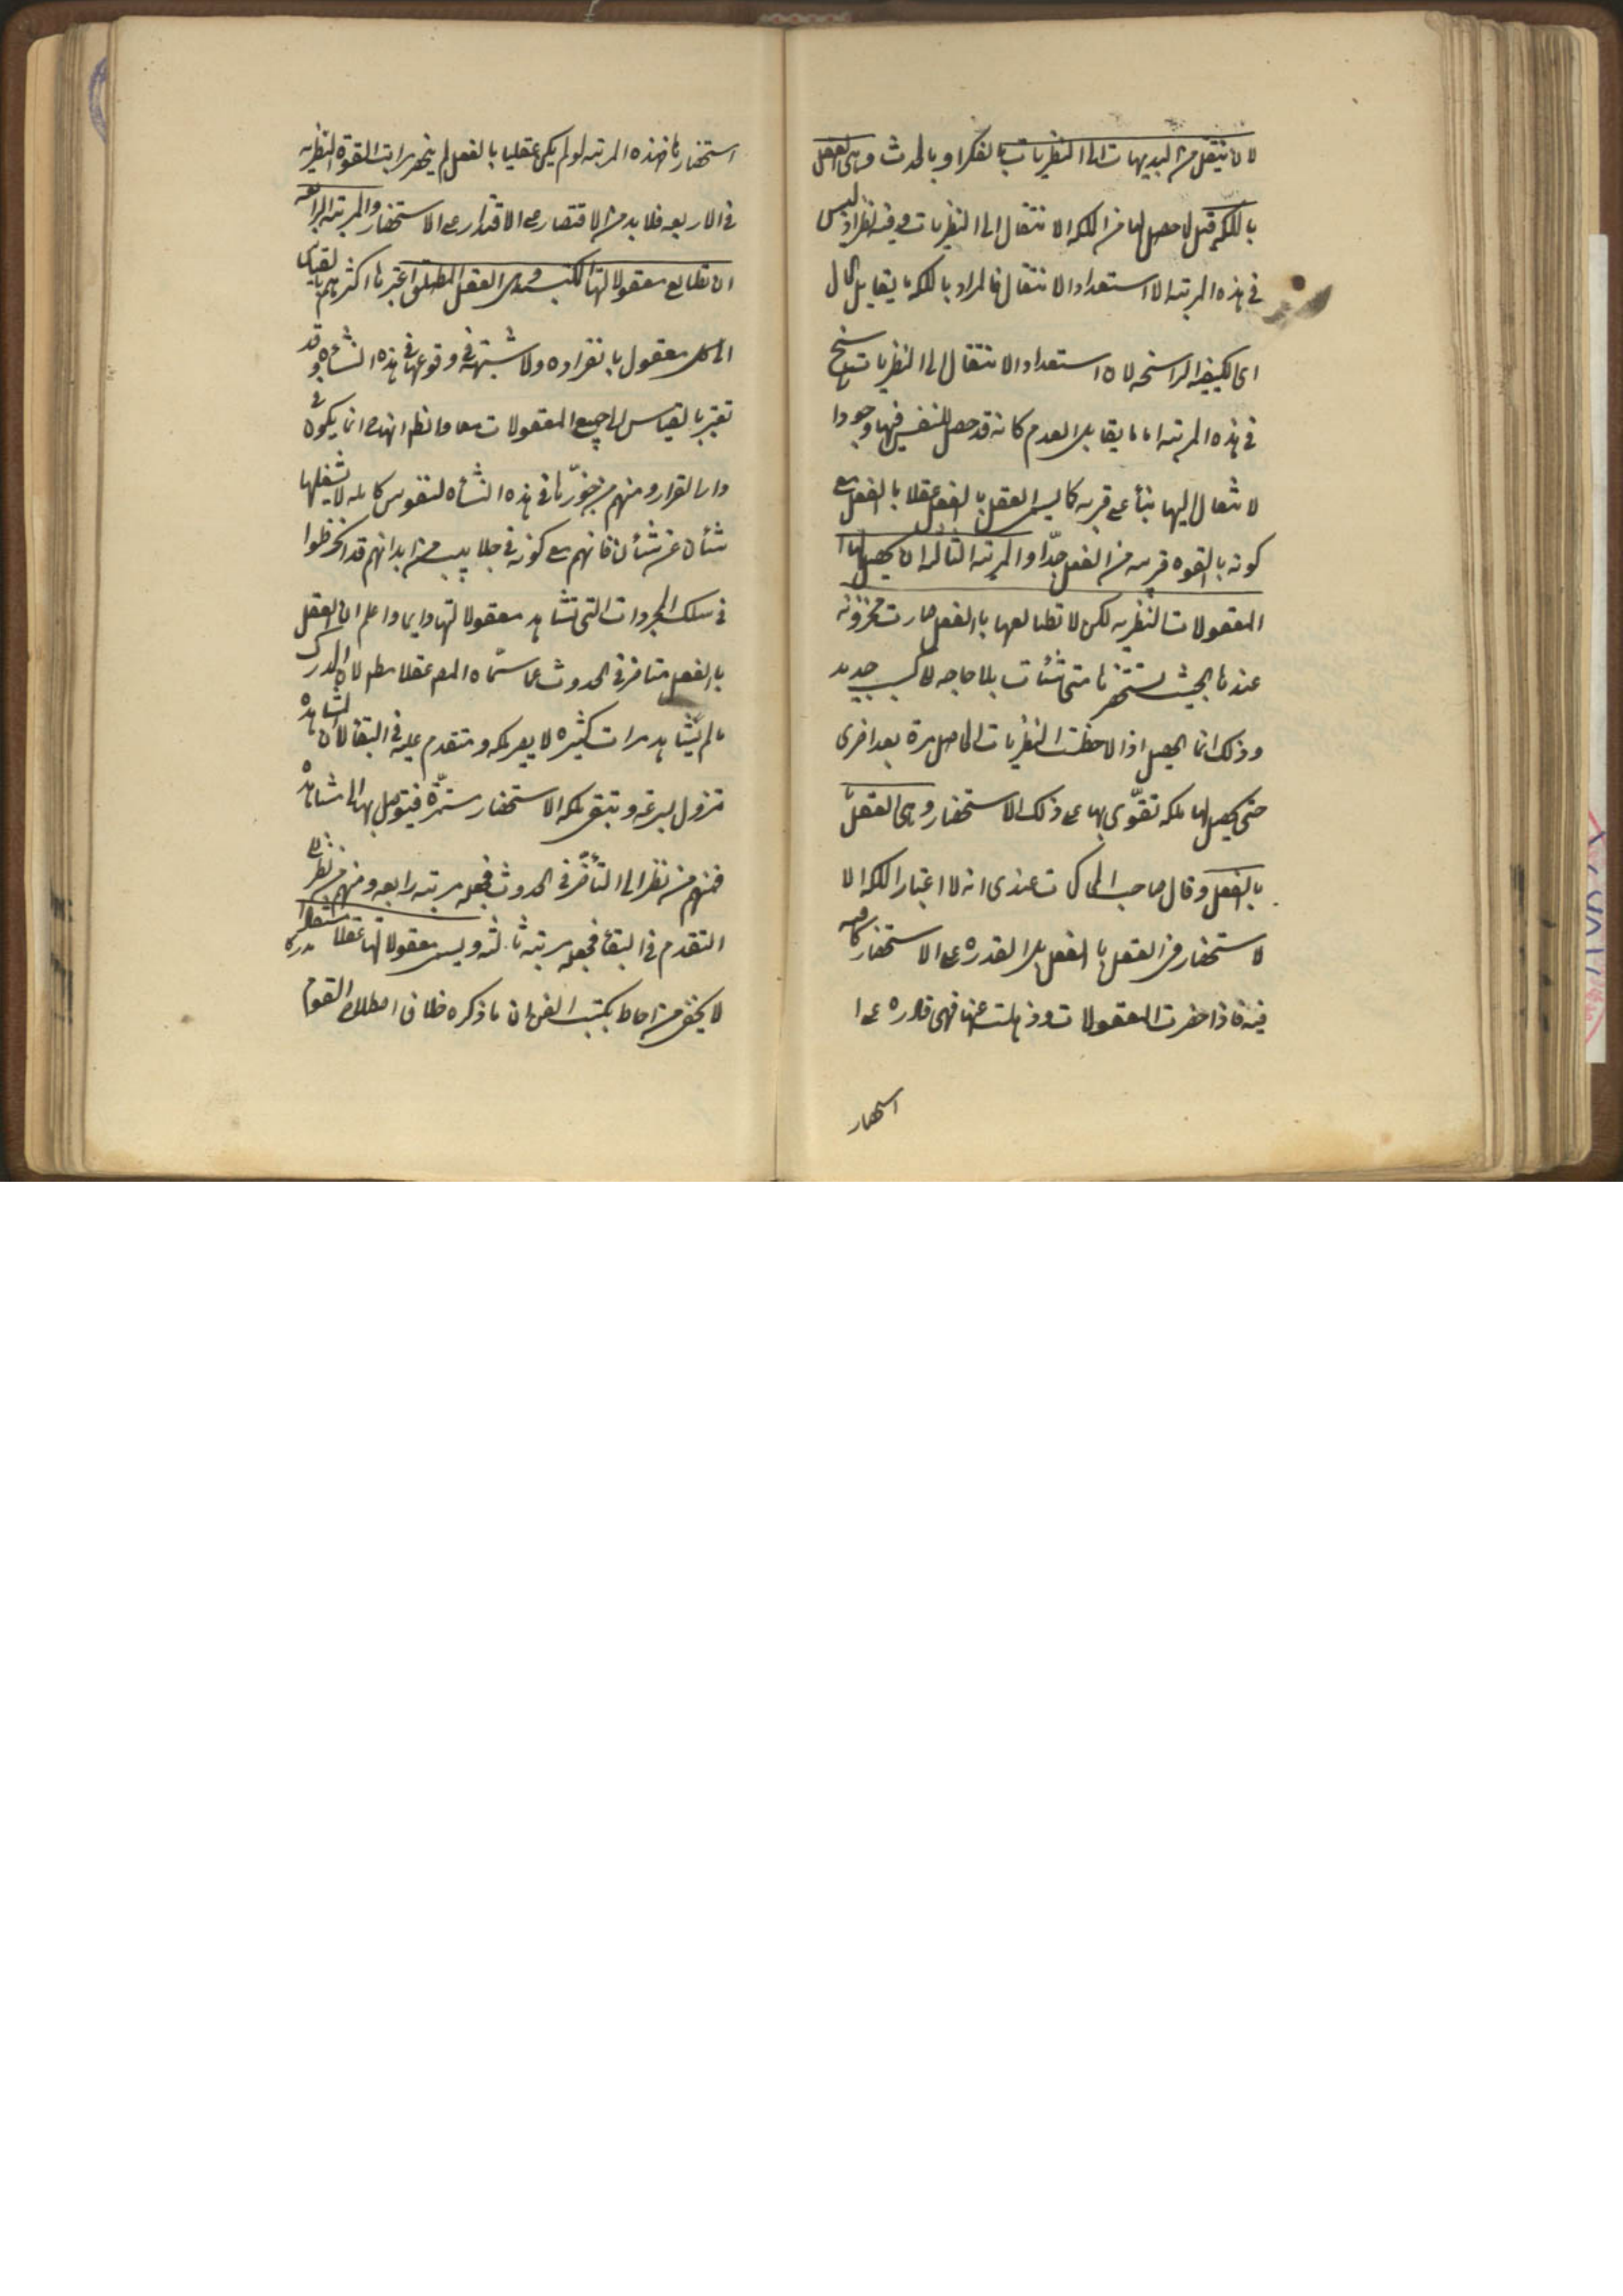 لان ينتقل من البديهيات الى النظريات بالفكر او بالحدث وهى العقل
بالملكة قيل لما حصل لها من ملكة الانتقال الى النظريات وفيه نظر اذ ليس
فى هذه المرتبه الا استعداد الانتقال فالمراد بالملكة ما يقابل الحال
اى الكيفيه الراسخه لان استعداد الانتقال الى النظريات راسخ
فى هذه المرتبه او ما يقابل العدم كانه قد حصل للنفس فيها وجود ا
لانتقال اليها بناء على قربه كما يسمى العقل بالفعل عقلا بالفعل مع
كونه بالقوه قريبه من الفعل جدّا والمرتبه الثالثه ان يحصل لها ا
المعقولات النظريه لكن لا تطالعها بالفعل صارت مخزونه
عندها بحيث يستحضرها متى شئت بلا حاجه لاكسب جديد
وذلك انما يحصل اذا لاحظت النظريات الحاصل مرة بعد اخرى
حتى يحصل لها ملكه تقوّى بها على ذلك الاستحضار وهى العقل
بالفعل وقال صاحب المحاكمات عندى انه لا اعتبار الملكه الا
لاستحضار فى العقل بالفعل بل القدره على الاستحضار كافيه
فيه فاذا حضرت المعقولات وذهلت عنها فهى قادره على ا
استحضار
استحضارها فهذه المرتبه لو لم يكن عقلها بالفعل لم ينحصر مراتب القوة النظريه
فى الاربعه فلا بد من الاقتصار على الاقتدار على الاستحضار والمرتبه الرابعه
ان تطالع معقولاتها المكتسبه وهى العقل المطلق اعتبرها اكثرهم بالقياس
الى كل معقول بانفراده ولا شبهة فى وقوعها فى هذه النشأه وقد
تعتبر بالقياس الى جميع المعقولات معا والظ انها انما يكون فى
دار القرار ومنهم من جوّزها فى هذه النشأه لنفوس كامله لا يشغلها
شأن عن شأن فانهم مع كونه فى جلابيب من ابدانهم قد انخرطوا
فى سلك المجردات التى تشاهد معقولاتها دايما واعلم ان العقل
بالفعل متاخر فى الحدوث عما سمّاه المص عقلا مطلقا لان المدرك
ما لم يشاهد مرات كثيره لا يصير ملكه ومتقدم عليه فى البقاء لان المشاهده
تزول بسرعه وتبقى ملكه الاستحضار مستمرّه فيتوصل بها الى مشاهده
فمنهم من نظر الى التأخر فى الحدوث فجعله مرتبه رابعه ومنهم من نظر الى
التقدم فى البقاء فجعله مرتبه ثالثه ويسمى معقولاتها عقلا مستفادا
لا يخفى من احاط بكتب الفن ان ما ذكره خلاف اصطلاح القوم